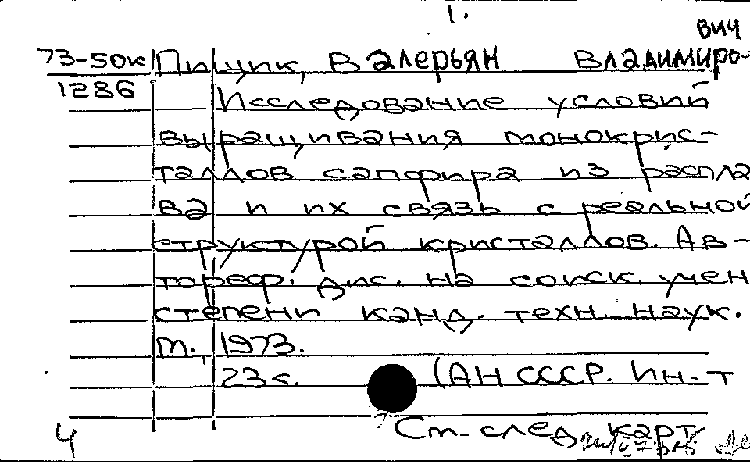 1.
вич
73-50к Пищик, Валерьян Владимиро-
1286
Исследование условий
выращивания монокрис-
таллов сапфира из распла
ва и их связь с реальной
структурой кристаллов. Ав-
тореф. дис. на соиск. учен
степени канд. техн. наук.
М., 1973.
23 с. (АН СССР. Ин-т
4 См. след карт